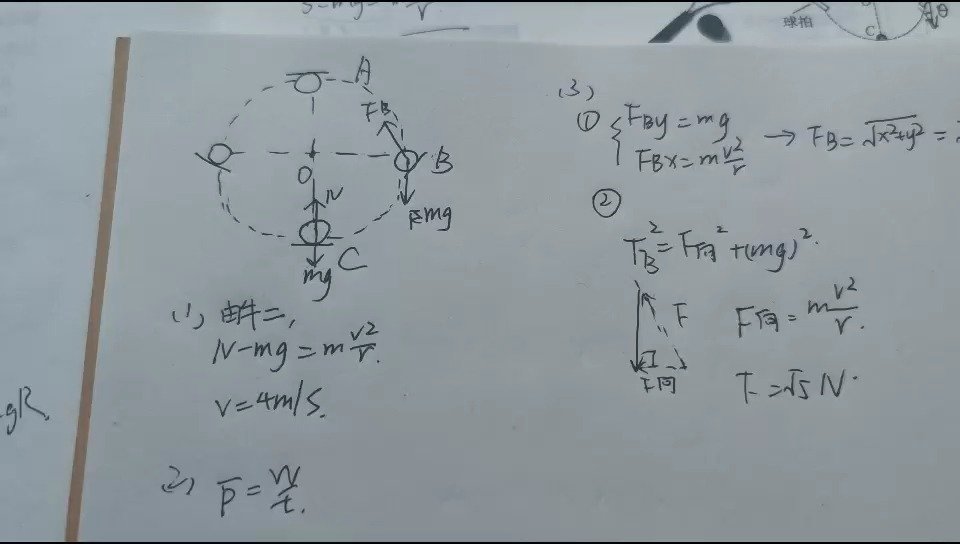 球拍
C
θ
A
FB
B
O
N
mg
C
mg
gR
(1) 由牛二,
N-mg=m v²/r.
v=4m/s.
(2) P̅=W/t.
(3)
① { FBy=mg
FBx=m v²/r → FB=√x²+y² =
②
FB²=F向²+(mg)².
F
F向
F向=m v²/r.
F=√5 N.